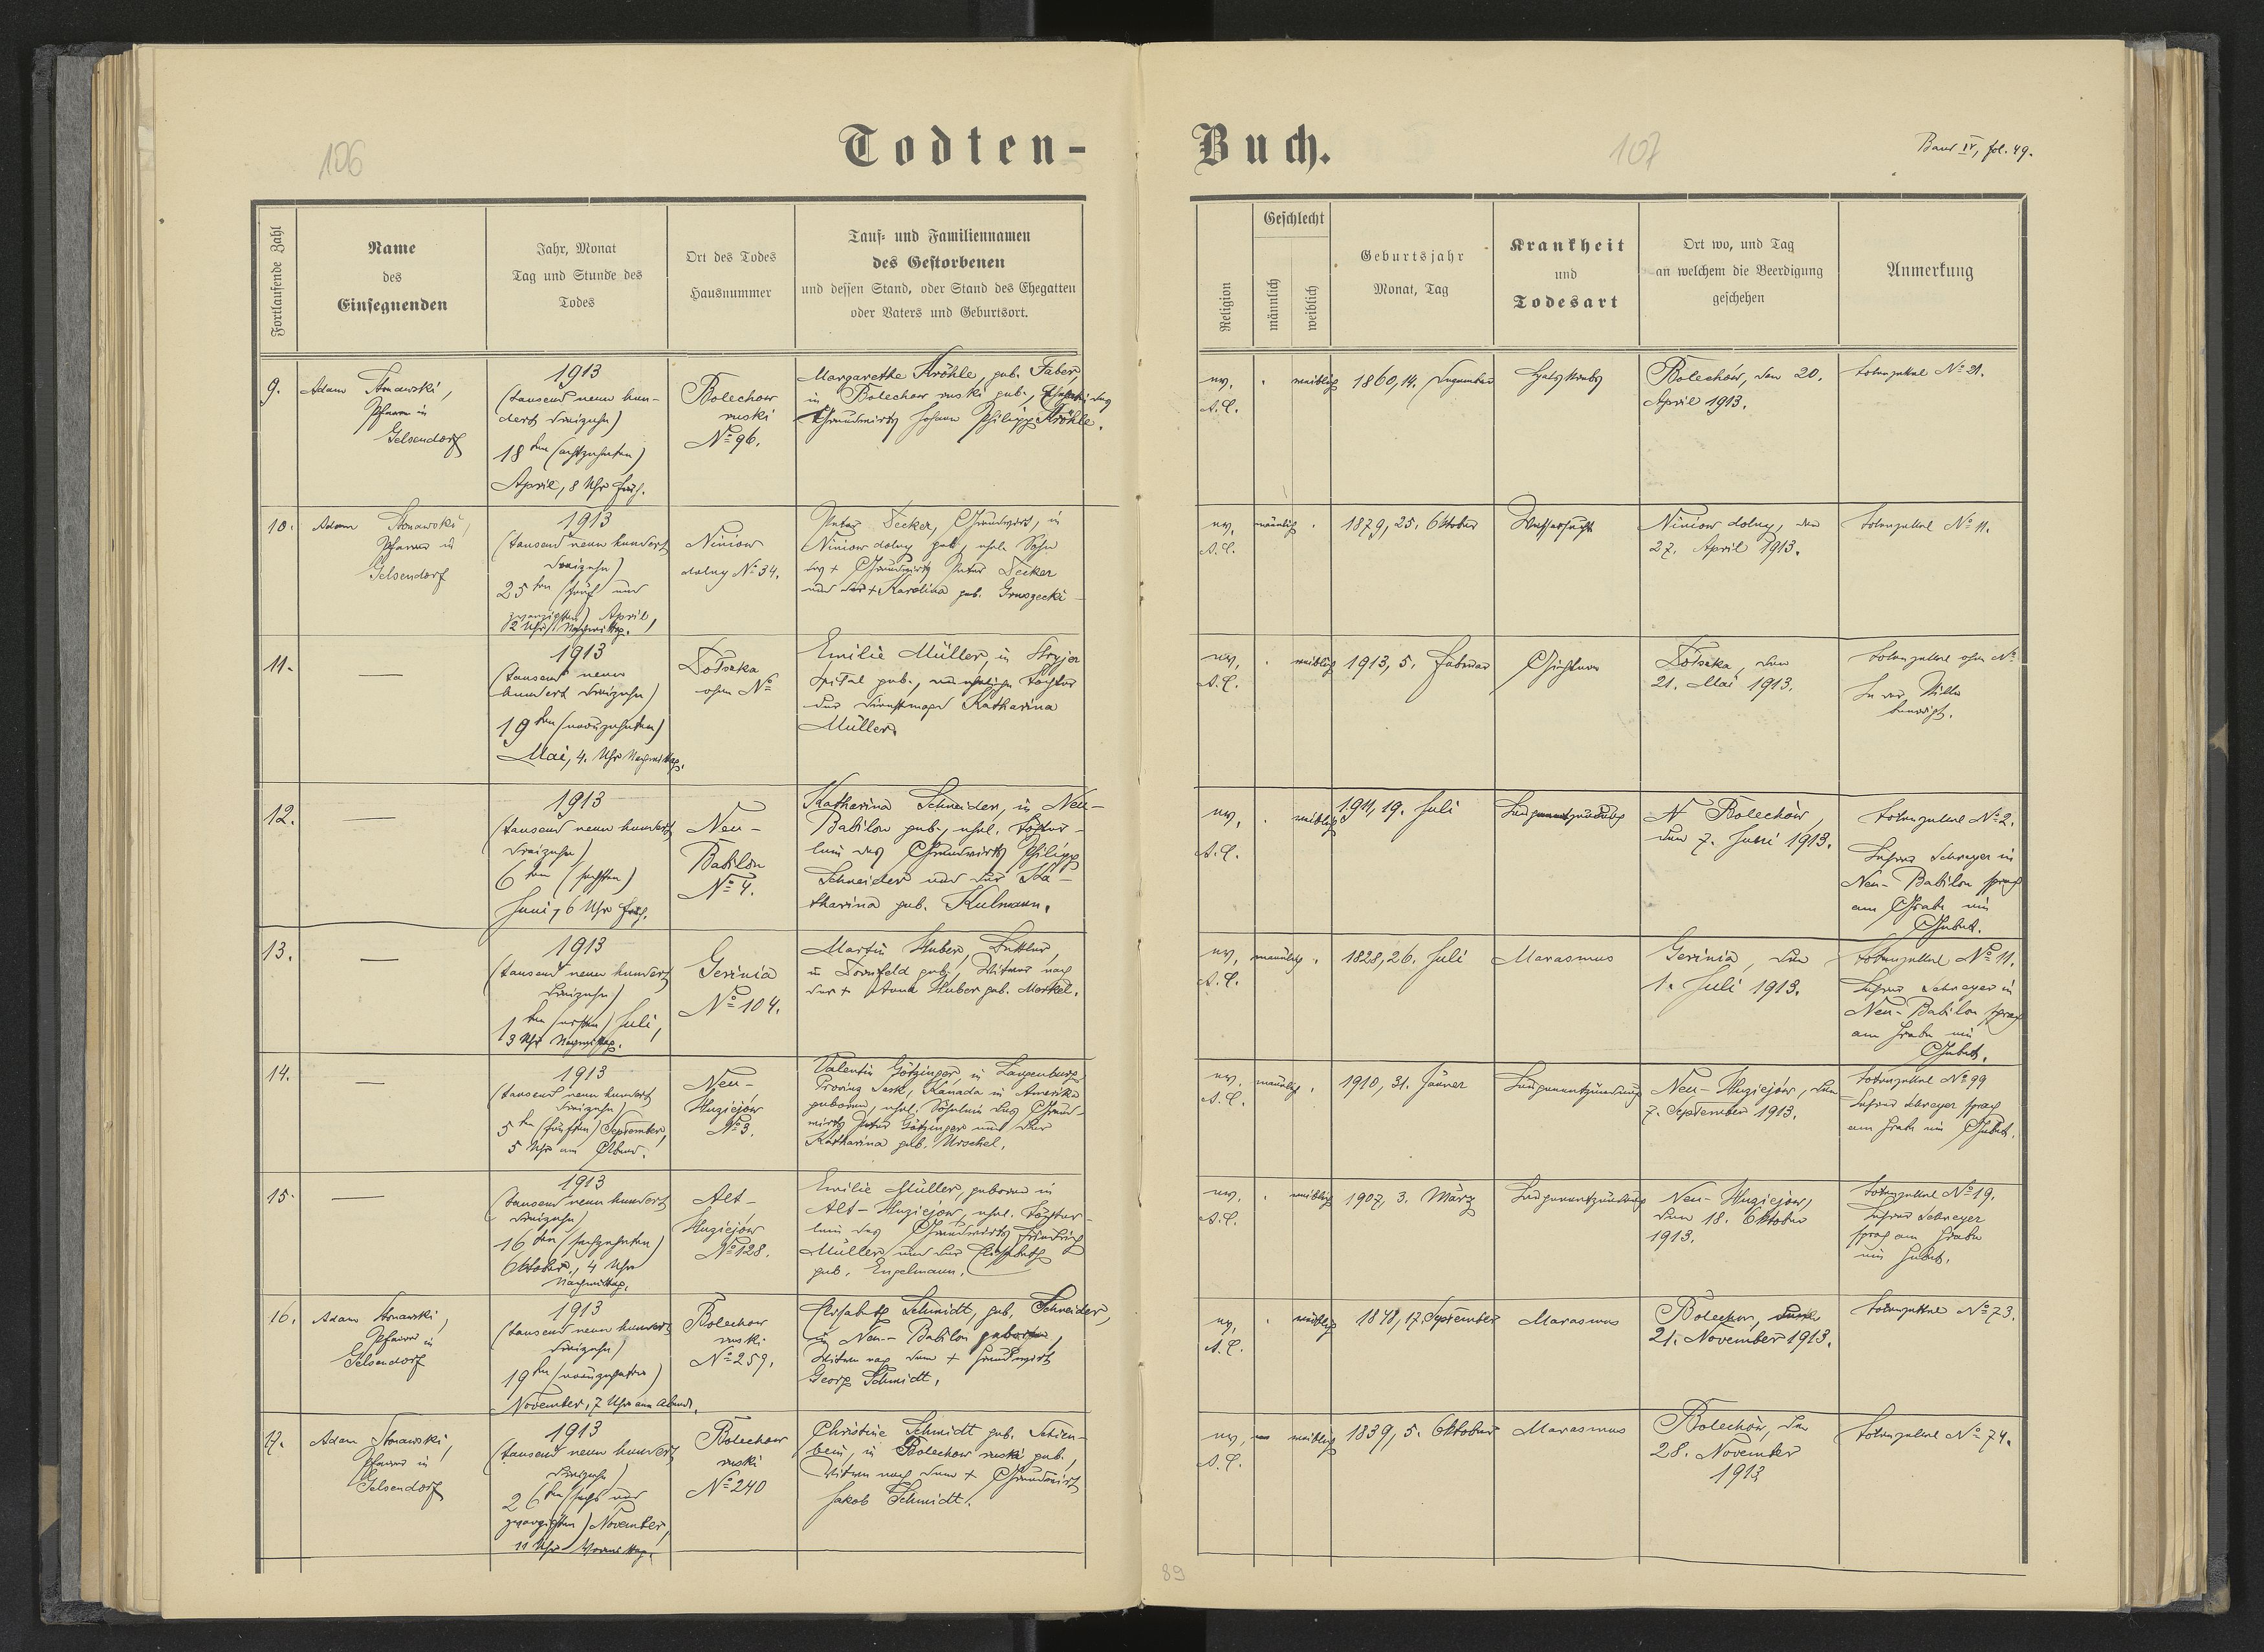 106
Todten-
Buch.
107
Band IV, fol. 49.
Fortlaufende Zahl
Name
des
Einsegnenden
Jahr, Monat
Tag und Stunde des
Todes
Ort des Todes
Hausnummer
Tauf- und Familiennamen
des Gestorbenen
und dessen Stand, oder Stand des Ehegatten
oder Vaters und Geburtsort.
Religion
Geschlecht
männlich
weiblich
Geburtsjahr
Monat, Tag
Krankheit
und
Todesart
Ort wo, und Tag
an welchem die Beerdigung
geschehen
Anmerkung
9.
Adam Stonawski,
Pfarrer in
Gelsendorf
1913
(tausend neun hun-
dert dreizehn)
18ten (achtzehnten)
April, 8 Uhr früh.
Bolechow
ruski
No 96.
Margarethe Kröhle, geb. Faber,
in Bolechow ruski geb., Ehefrau des
Grundwirts Johann Philipp Kröhle.
ev.
A.C.
weiblich
1860, 14. Dezember
Halskrebs
Bolechów, den 20.
April 1913.
Totenzettel No 21.
10.
Adam Stonawski,
Pfarrer in
Gelsendorf
1913
(tausend neun hundert
dreizehn)
25ten (fünf und
zwanzigsten) April,
2 Uhr Nachmittag.
Niniow
dolny No 34.
Peter Decker, Grundwirt, in
Niniow dolny geb., ehel. Sohn
des + Grundwirts Peter Decker
und der + Karolina geb. Gruszecki
ev.
A.C.
männlich
1879, 25. Oktober
Wassersucht
Niniow dolny, den
27. April 1913.
Totenzettel No 11.
11.
1913
(tausend neun
hundert dreizehn)
19ten (neunzehnten)
Mai, 4. Uhr Nachmittag.
ohne No
Emilie Müller, in Stryjer
Spital geb., uneheliche Tochter
der Dienstmagd Katharina
Müller.
ev.
A.C.
weiblich
1913, 5. Februar
Gichtern
21. Mai 1913.
Totenzettel ohne No
In der Stille
beerdigt.
12.
1913
(tausend neun hundert
dreizehn)
6ten (sechsten)
Juni, 6 Uhr früh.
Neu-
Babilon
No 4.
Katharina Schneider, in Neu-
Babilon geb., ehel. Töchter-
lein des Grundwirts Philipp
Schneider und der Ka-
tharina geb. Kulmann.
ev.
A.C.
weiblich
1911, 19. Juli
Lungenentzündung
N Bolechów,
den 7. Juni 1913.
Totenzettel No 2.
Lehrer Schreyer in
Neu-Babilon sprach
am Grabe ein
Gebet.
13.
1913
(tausend neun hundert
dreizehn)
1ten (ersten) Juli,
3 Uhr Nachmittag.
Gerinia
No 104.
Martin Huber, Bettler,
in Dornfeld geb., Witwer nach
der + Anna Huber geb. Merkel.
ev.
A.C.
männlich
1828, 26. Juli
Marasmus
Gerinia, den
1. Juli 1913.
Totenzettel No 11.
Lehrer Schreyer in
Neu-Babilon sprach
am Grabe ein
Gebet.
14.
1913
(tausend neun hundert
dreizehn)
5ten (fünften) September,
5 Uhr am Abend.
Neu-
Huziejów
No 3.
Valentin Götzinger, in Langenburg,
Provinz Sask, Kanada in Amerika
geboren, ehel. Söhnlein des Grund-
wirts Peter Götzinger und der
Katharina geb. Urschel.
ev.
A.C.
männlich
1910, 31. Jänner
Lungenentzündung
Neu-Huziejów, den
7. September 1913.
Totenzettel No 99
Lehrer Schreyer sprach
am Grabe ein Gebet.
15.
1913
(tausend neun hundert
dreizehn)
16ten (sechzehnten)
Oktober, 4 Uhr
Nachmittag.
Alt-
Huziejów
No 128.
Emilie Müller, geboren in
Alt-Huziejów, ehel. Töchter-
lein des Grundwirts Friedrich
Müller und der Elisabeth
geb. Engelmann.
ev.
A.C.
weiblich
1907, 3. März
Lungenentzündung
Neu-Huziejów,
den 18. Oktober
1913.
Totenzettel No 19.
Lehrer Schreyer
sprach am Grabe
ein Gebet.
16.
Adam Stonawski,
Pfarrer in
Gelsendorf
1913
(tausend neun hundert
dreizehn)
19ten (neunzehnten)
November, 7 Uhr am Abend.
Bolechow
ruski
No 259.
Elisabeth Schmidt, geb. Schneider,
in Neu-Babilon geboren,
Witwe nach dem + Grundwirt
Georg Schmidt.
ev.
A.C.
weiblich
17. September
Marasmus
Bolechow, den
21. November 1913.
Totenzettel No 73.
17.
Adam Stonawski,
Pfarrer in
Gelsendorf
1913
(tausend neun hundert
dreizehn)
26ten (sechs und
zwanzigsten) November,
11 Uhr Vormittag.
Bolechow
ruski
No 240
Christine Schmidt geb. Schien-
bein, in Bolechow ruski geb.,
Witwe nach dem + Grundwirt
Jakob Schmidt.
ev.
A.C.
weiblich
1839, 5. Oktober
Marasmus
Bolechów, den
28. November
1913
Totenzettel No 74.
89